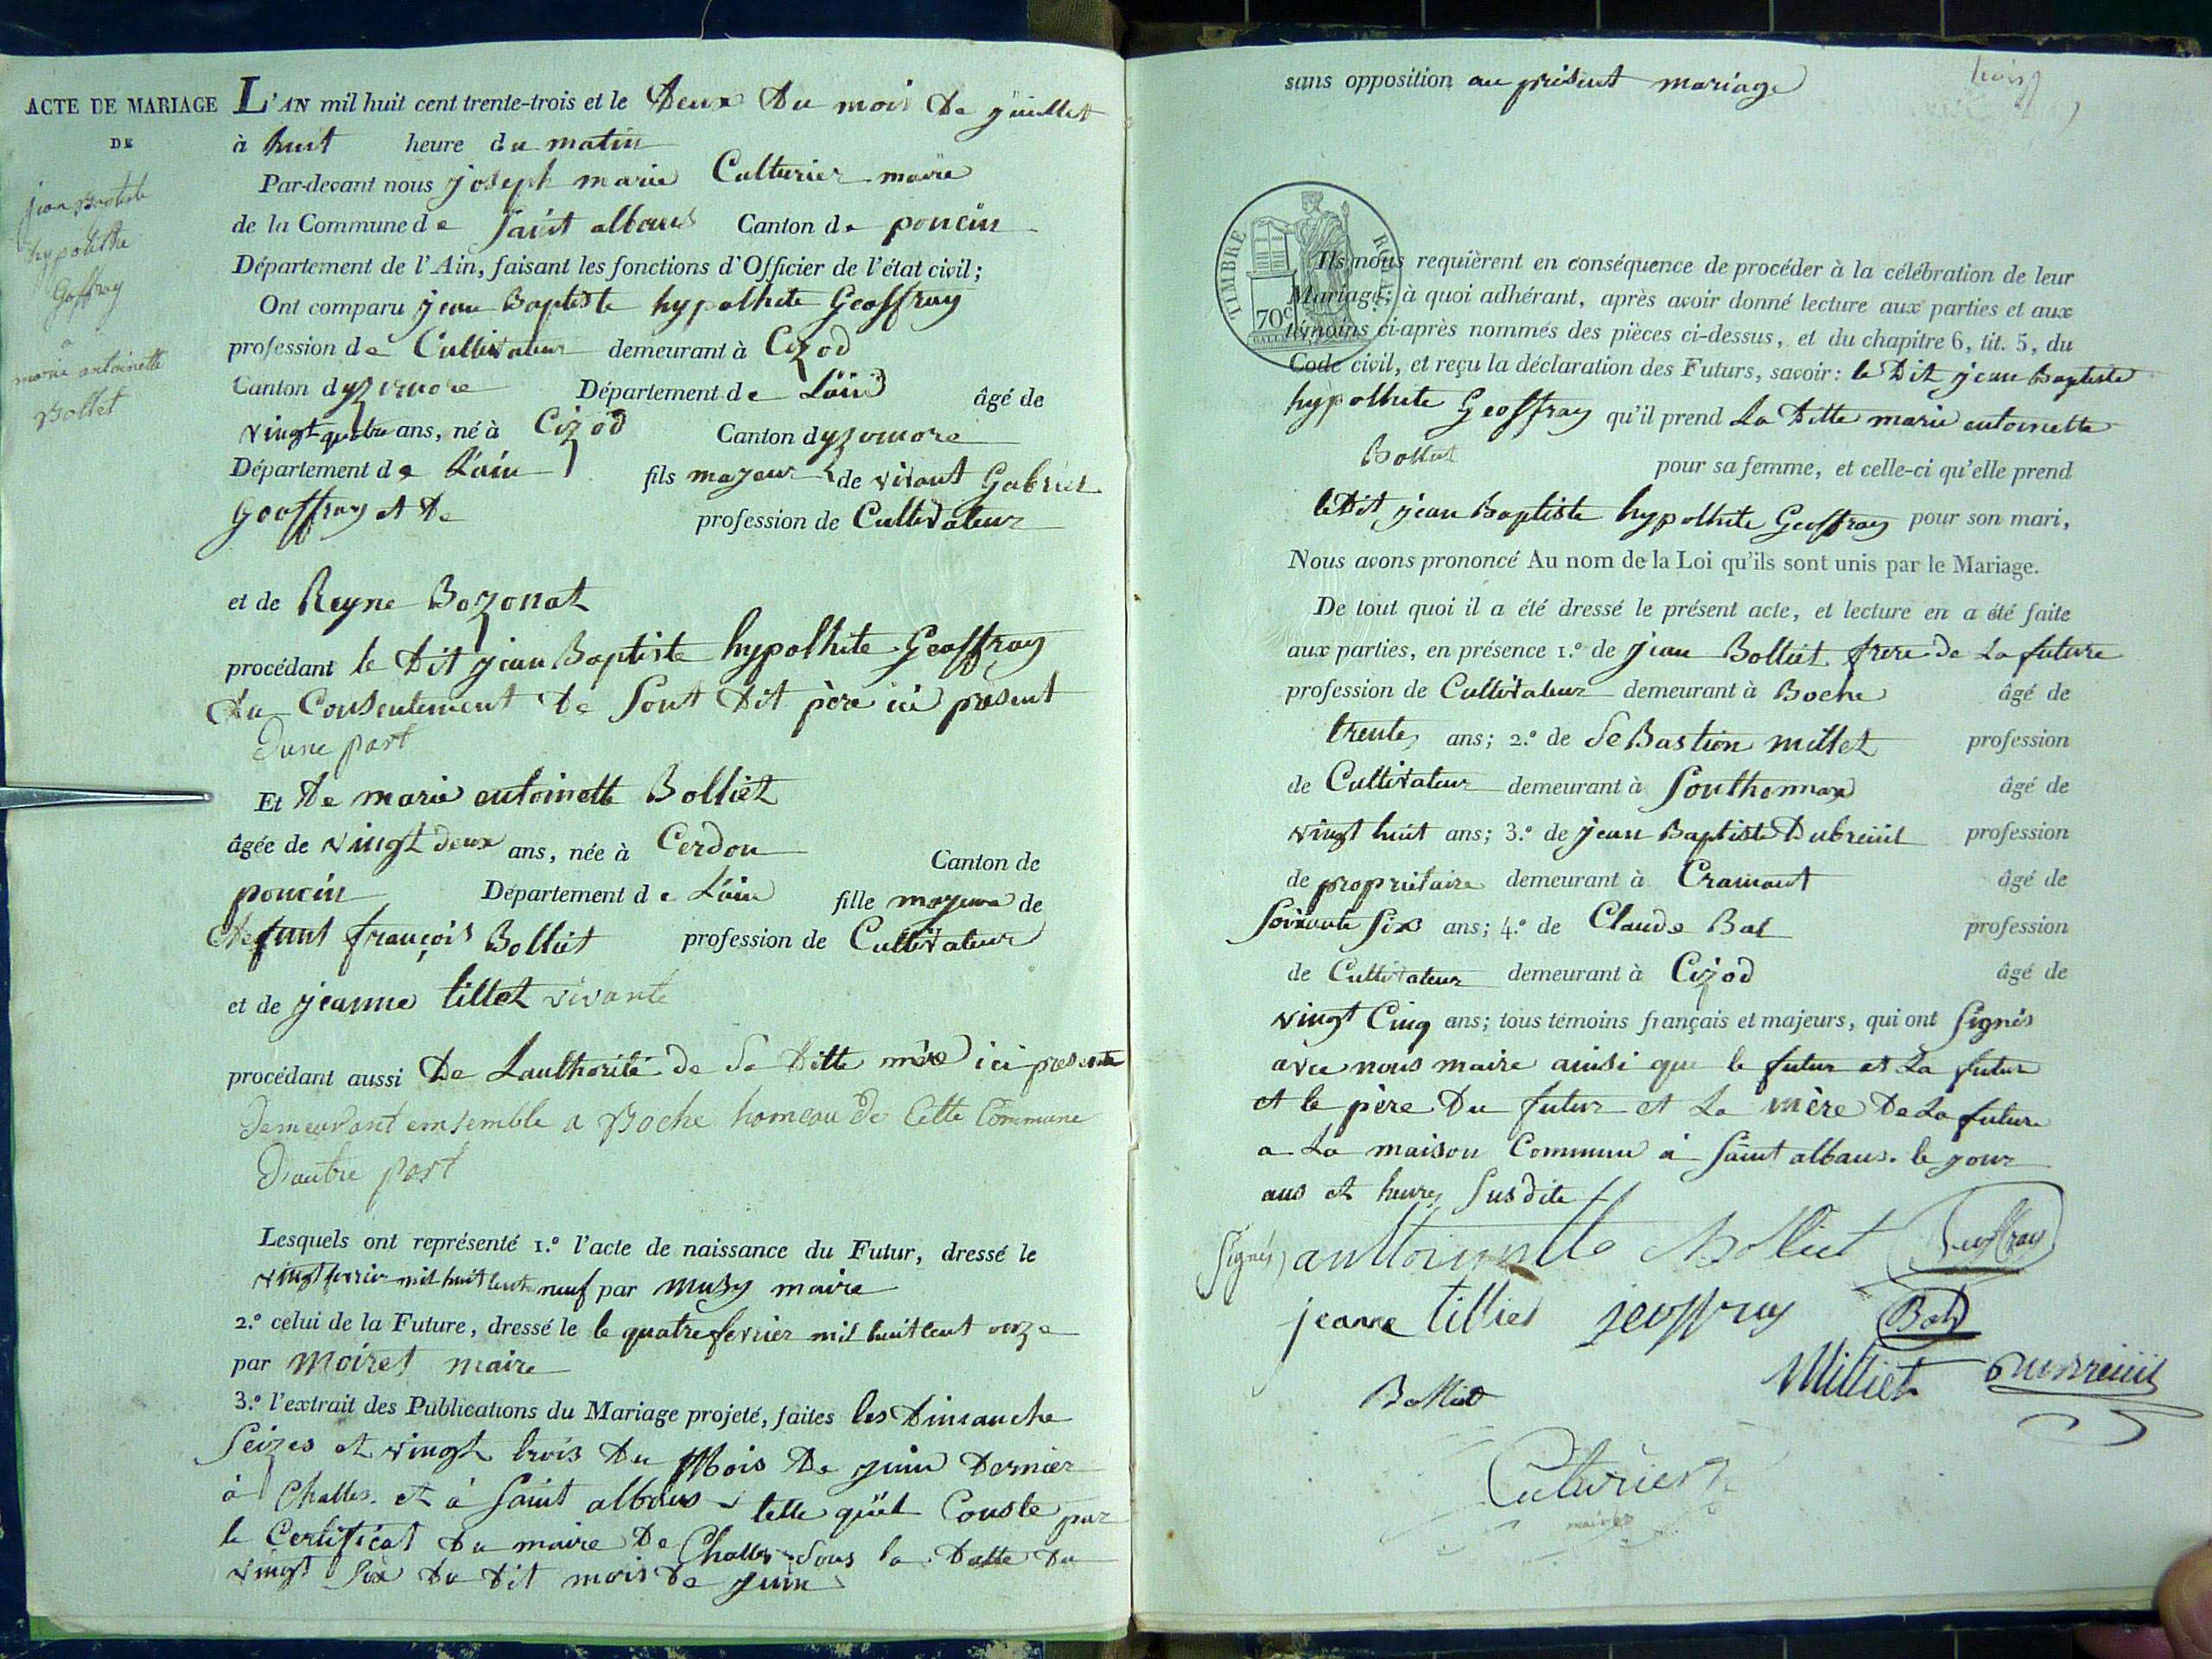 ACTE DE MARIAGE
DE
jean Baptiste
hypolithe
Goffray
a
marie antoinette
Bollet
L'AN mil huit cent trente-trois et le Deux Du mois De juillet
à huit heure du matin
Par-devant nous joseph marie Culturier maire
de la Commune de Saint albans Canton de poncin
Département de l'Ain, faisant les fonctions d'Officier de l'état civil;
Ont comparu jean Baptiste hypolhite Geoffray
profession de Cultivateur demeurant à Cizod
Canton dyzernore Département de Lain âgé de
vingt quatre ans, né à Cizod Canton dyzernore
Département de Lain fils majeur de vivant Gabriel
Geoffray et De profession de Cultivateur
et de Reyne Bozonat
procédant le Dit jean Baptiste hypolhite Geoffray
Du Consentement De Sont Dit père ici present
Dune part
Et De marie entoinette Bolliet
âgée de vingt deux ans, née à Cerdon Canton de
poncin Département de Lain fille mayeure de
Defunt françois Bolliet profession de Cultivateur
et de jeanne tillet vivante
procédant aussi De Lauthorité de Sa Ditte mère ici presente
Demeurant emsemble a Boche hameau de Cette Commune
D'autre part
Lesquels ont représenté 1.º l'acte de naissance du Futur, dressé le
vingt fevrier mil huit cent neuf par musy maire
2.º celui de la Future, dressé le le quatre fevrier mil huit cent onze
par moiret maire
3.º l'extrait des Publications du Mariage projeté, faites les Dimanche
Seizes et vingt trois Du Mois De juin Dernier
à Challes et à Saint albans telle quil Conste par
le Certificat Du maire De Challes Sous la Datte Du
vingt Six Du Dit mois De juin
sans opposition au présent mariage
TIMBRE ROYAL
70c
Ils nous requièrent en conséquence de procéder à la célébration de leur
Mariage; à quoi adhérant, après avoir donné lecture aux parties et aux
témoins ci-après nommés des pièces ci-dessus, et du chapitre 6, tit. 5, du
Code civil, et reçu la déclaration des Futurs, savoir: le Dit jean Baptiste
hypolhite Geoffray qu'il prend La Ditte marie entoinette
Bolliet pour sa femme, et celle-ci qu'elle prend
le Dit jean Baptiste hypolhite Geoffray pour son mari,
Nous avons prononcé Au nom de la Loi qu'ils sont unis par le Mariage.
De tout quoi il a été dressé le présent acte, et lecture en a été faite
aux parties, en présence 1.º de jean Bolliet frere de La future
profession de Cultivateur demeurant à Boche âgé de
trente ans; 2.º de SeBastien millet profession
de Cultivateur demeurant à Southonnax âgé de
vingt huit ans; 3.º de jean Baptiste Dubreüil profession
de propriétaire demeurant à Cramant âgé de
Soixante Six ans; 4.º de Claude Bal profession
de Cultivateur demeurant à Cizod âgé de
vingt Cinq ans; tous témoins français et majeurs, qui ont Signés
avec nous maire ainsi que le futur et La future
et le père Du futur et La mère De La future
a La maison Commune à Saint albans. le jour
ans et heures Susdite
Signés) anttoinette Bolliet Jeoffray
jeanne tilliet jeoffray Bal
Bolliet Milliet Dubreüil
Culturier
maire